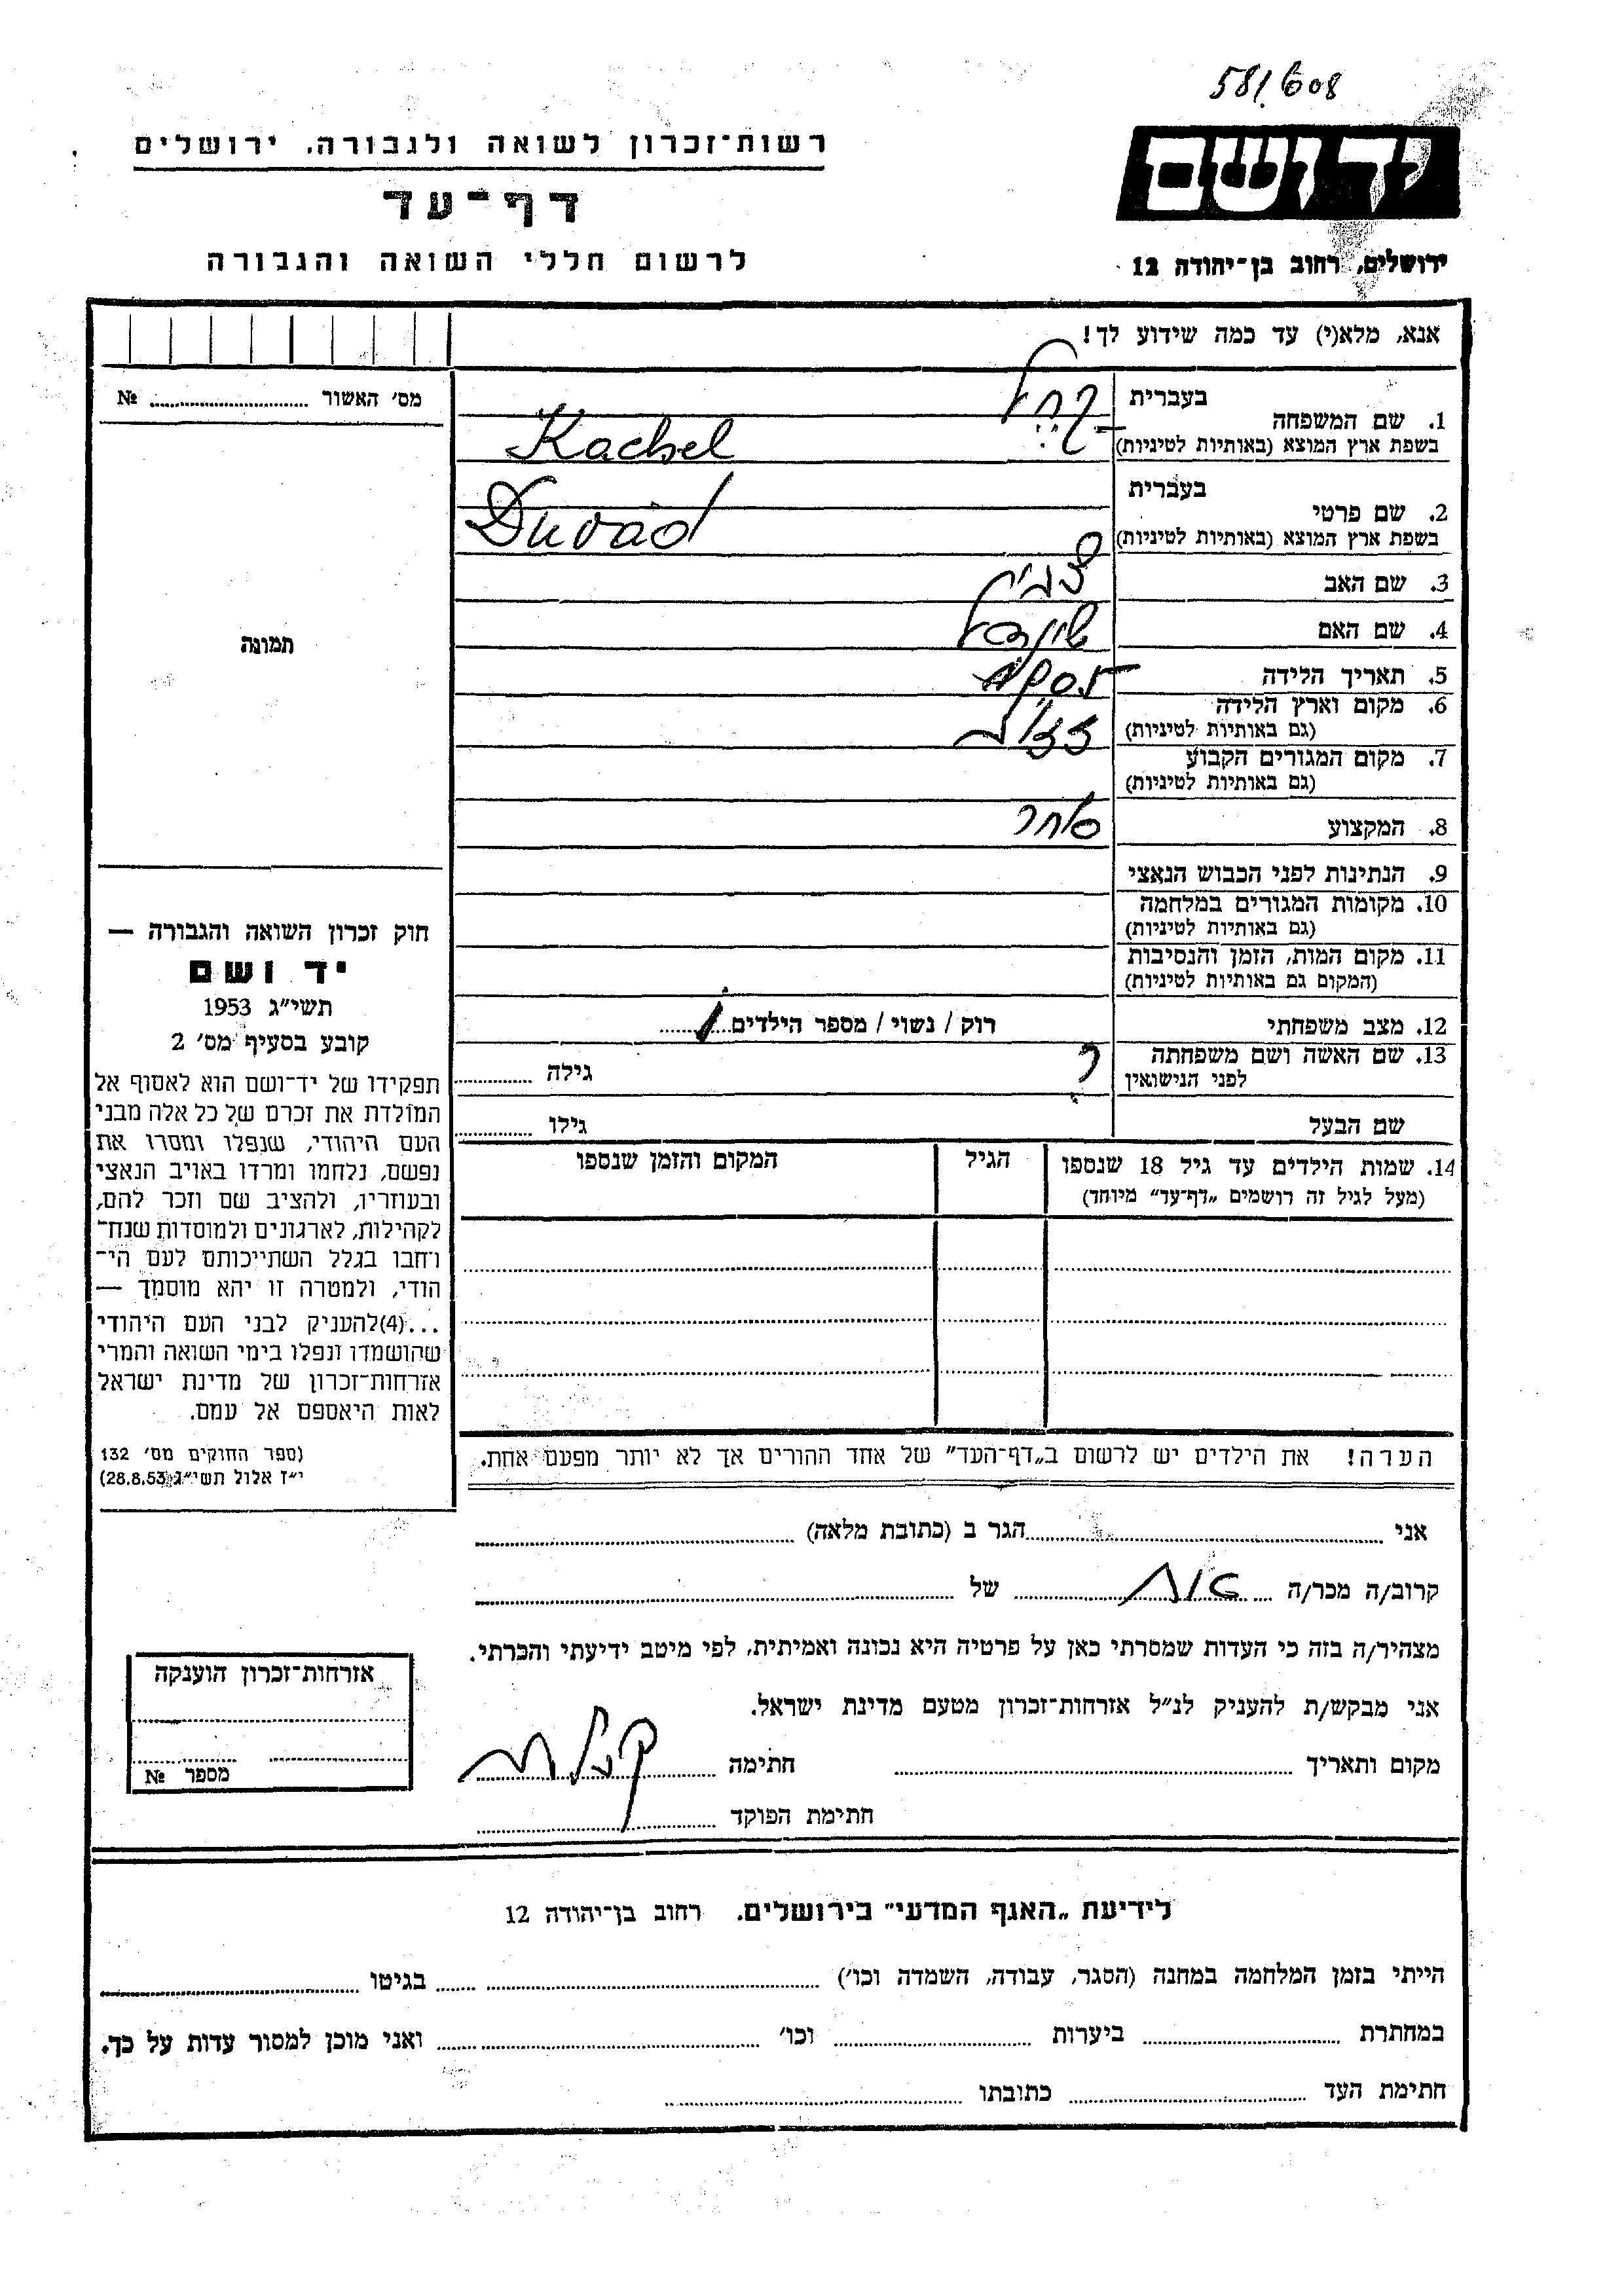 581608
יד ושם
רשות־זכרון לשואה ולגבורה. ירושלים
דף־עד
לרשום חללי השואה והגבורה
ירושלים, רחוב בן־יהודה 12
אנא, מלא(י) עד כמה שידוע לך!
מס׳ האשור № ......
תמונה
1. שם המשפחה
בעברית
בשפת ארץ המוצא (באותיות לטיניות) Kachel
2. שם פרטי
בעברית
בשפת ארץ המוצא (באותיות לטיניות)
3. שם האב
4. שם האם
5. תאריך הלידה
6. מקום וארץ הלידה
(גם באותיות לטיניות)
7. מקום המגורים הקבוע
(גם באותיות לטיניות)
8. המקצוע סוחר
9. הנתינות לפני הכבוש הנאצי
10. מקומות המגורים במלחמה
(גם באותיות לטיניות)
11. מקום המות, הזמן והנסיבות
(המקום גם באותיות לטיניות)
12. מצב משפחתי רוק / נשוי / מספר הילדים
13. שם האשה ושם משפחתה
לפני הנישואין
? גילה ......
שם הבעל גילו ......
14. שמות הילדים עד גיל 18 שנספו
(מעל לגיל זה רושמים „דף־עד״ מיוחד)
הגיל
המקום והזמן שנספו
חוק זכרון השואה והגבורה —
יד ושם
תשי״ג 1953
קובע בסעיף מס׳ 2
תפקידו של יד־ושם הוא לאסוף אל
המולדת את זכרם של כל אלה מבני
העם היהודי, שנפלו ומסרו את
נפשם, נלחמו ומרדו באויב הנאצי
ובעוזריו, ולהציב שם וזכר להם,
לקהילות, לארגונים ולמוסדות שנח־
רחבו בגלל השתייכותם לעם הי־
הודי, ולמטרה זו יהא מוסמך —
...(4)להעניק לבני העם היהודי
שהושמדו ונפלו בימי השואה והמרי
אזרחות־זכרון של מדינת ישראל
לאות היאספם אל עמם.
(ספר החוקים מס׳ 132
י״ז אלול תשי״ג 28.8.53)
הערה! את הילדים יש לרשום ב„דף־העד״ של אחד ההורים אך לא יותר מפעם אחת.
אני ...... הגר ב (כתובת מלאה) ......
קרוב/ה מכר/ה ...... של ......
מצהיר/ה בזה כי העדות שמסרתי כאן על פרטיה היא נכונה ואמיתית, לפי מיטב ידיעתי והכרתי.
אני מבקש/ת להעניק לנ״ל אזרחות־זכרון מטעם מדינת ישראל.
מקום ותאריך ...... חתימה
חתימת הפוקד ......
אזרחות־זכרון הוענקה
מספר №
לידיעת „האגף המדעי״ בירושלים. רחוב בן־יהודה 12
הייתי בזמן המלחמה במחנה (הסגר, עבודה, השמדה וכו׳) ...... בגיטו ......
במחתרת ...... ביערות ...... וכו׳ ...... ואני מוכן למסור עדות על כך.
חתימת העד ...... כתובתו ......